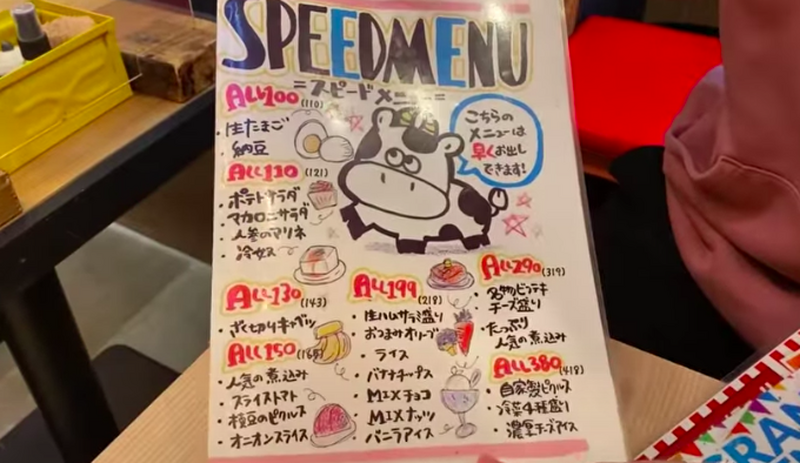 SPEEDMENU
=スピードメニュー=
ALL100(110)
・生たまご
・納豆
こちらの
メニューは
早くお出し
できます!
ALL110(121)
・ポテトサラダ
・マカロニサラダ
・人参のマリネ
・冷奴
ALL130(143)
・ざく切りキャベツ
ALL150(165)
・人気の煮込み
・スライストマト
・枝豆のピクルス
・オニオンスライス
ALL199(218)
・生ハムサラミ盛り
・おつまみオリーブ
・ライス
・バナナチップス
・MIXチョコ
・MIXナッツ
・バニラアイス
ALL290(319)
・名物ビフテキ
チーズ盛り
・たっぷり
人気の煮込み
ALL380(418)
・自家製ピクルス
・冷菜4種盛り
・濃厚チーズアイス
GRAN